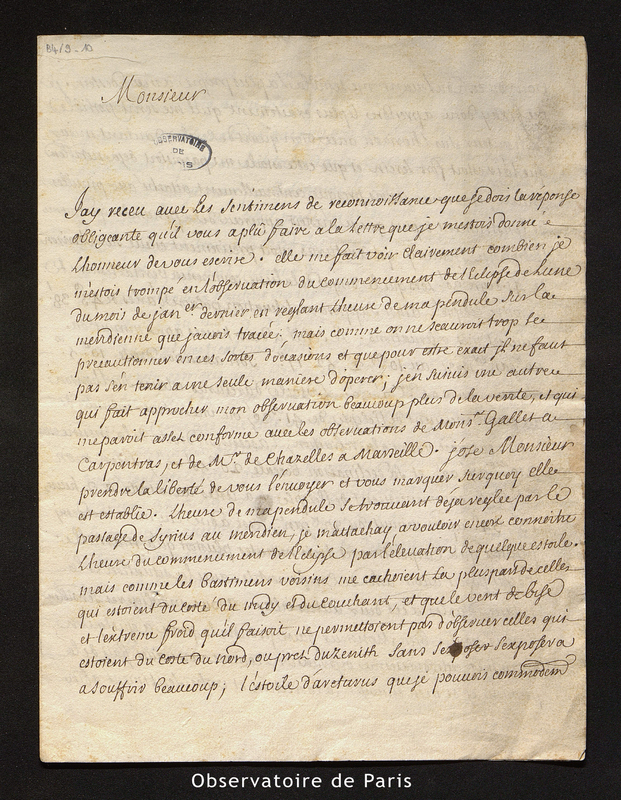 B4/9-10
Monsieur
OBSERVATOIRE
DE
IS
Jay receu avec les sentimens de reconnoissance que je dois la réponse
obligeante qu'il vous a plu faire a la lettre que je m'estois donné
l'honneur de vous escrire. elle me fait voir clairement combien je
m'estois trompé en l'observation du commencement de l'Eclipse de Lune
du mois de janer dernier en reglant l'heure de ma pendule sur la
meridienne que j'avois tracée: mais comme on ne scauroit trop se
precautionner en ces sortes d'occasions et que pour estre exact il ne faut
pas s'en tenir a une seule maniere d'operer; j'en suivis une autre
qui fait approcher mon observation beaucoup plus de la verité, et qui
me paroit assez conforme avec les observations de Monsr Gallet a
Carpentras, et de Mr de Chazelles a Marseille. jose Monsieur
prendre la liberté de vous l'envoyer et vous marquer sur quoy elle
est establie. L'heure de ma pendule se trouvant deja reglée par le
passage de Syrius au meridien, je m'attachay a vouloir encor connoitre
l'heure du commencement de l'Eclipse par l'elevation de quelque estoile.
mais comme les bastimens voisins me cachoient la pluspart de celles
qui estoient du costé du midy et du couchant, et que le vent de bise
et l'extreme froid qu'il faisoit ne permettoient pas d'observer celles qui
estoient du coste du nord, ou prez du zenith sans s'exposer s'exposer a
a souffrir beaucoup; l'estoile d'arcturus que je pouvois commodemt
Observatoire de Paris